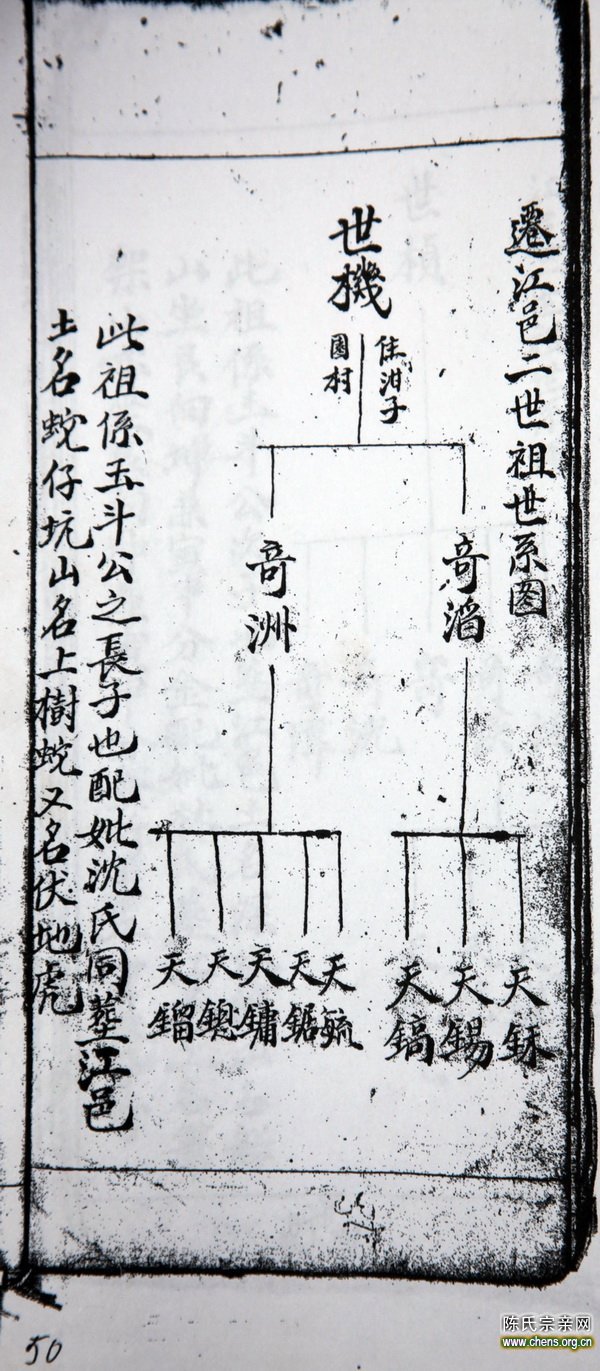 遷江邑二世祖世系图
世機
住泔子
園村
奇滔
奇洲
天鉢
天錫
天鎬
天毓
天鋸
天鏞
天鏓
天鎦
此祖係玉斗公之長子也配妣沈氏同塟江邑
土名蛇仔坑山名上樹蛇又名伏地虎
50
陈氏宗亲网
www.chens.org.cn